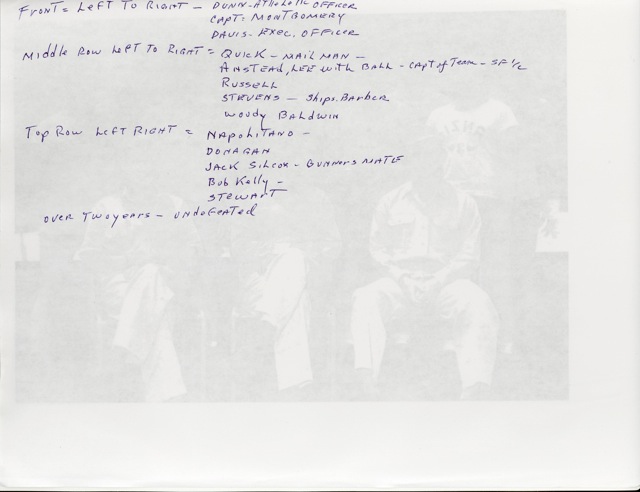 Front = Left To Right - Dunn - Athletic Officer
Capt. Montgomery
Davis - Exec. Officer
Middle Row Left To Right = Quick - Mail Man -
Anstead, Lee with Ball - Capt of Team - SF 1/c
Russell
Stevens - Ships. Barber
Woody Baldwin
Top Row Left Right = Napolitano -
Donagan
Jack Silcox - Gunners Mate
Bob Kelly -
Stewart
Over Two years - Undefeated